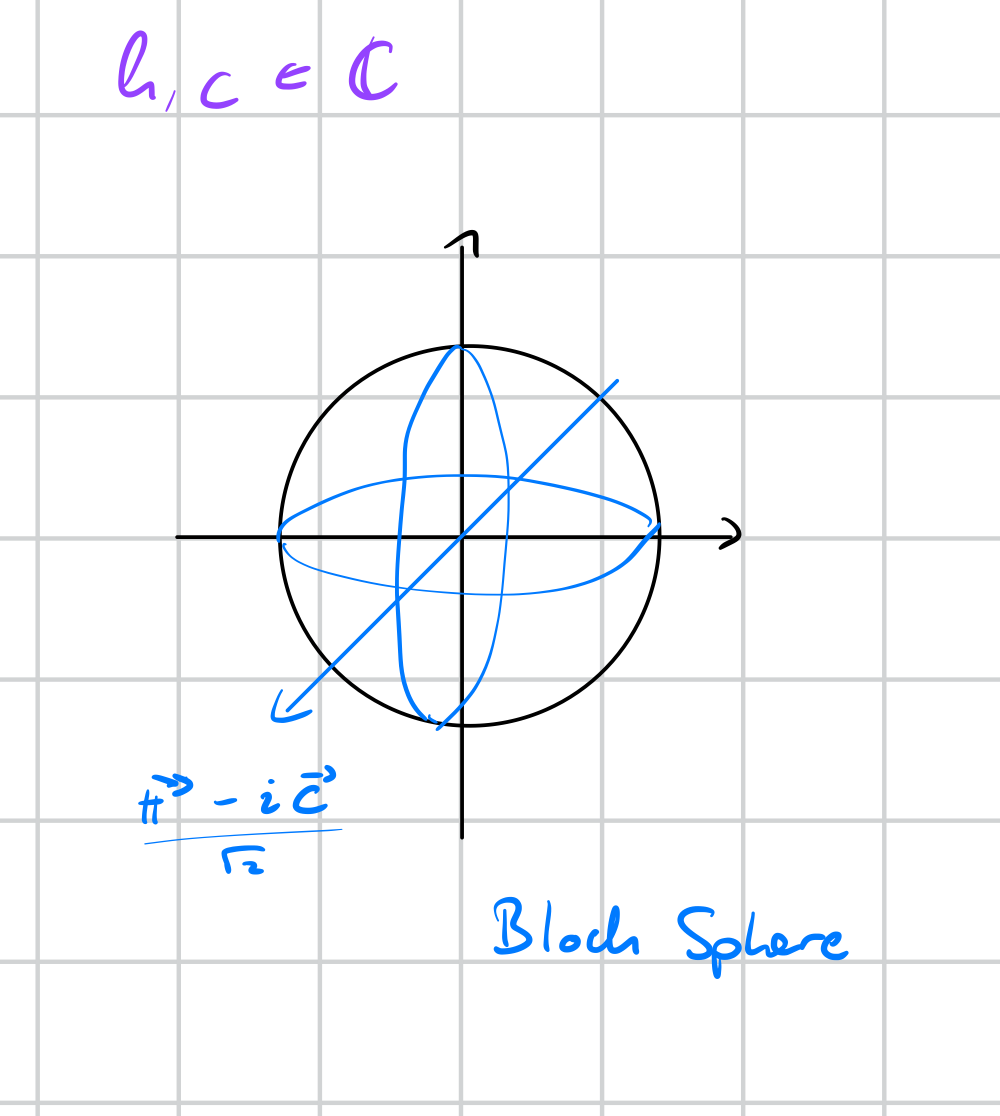 h, c ∈ ℂ
H⃗ - i c⃗
√2
Bloch Sphere